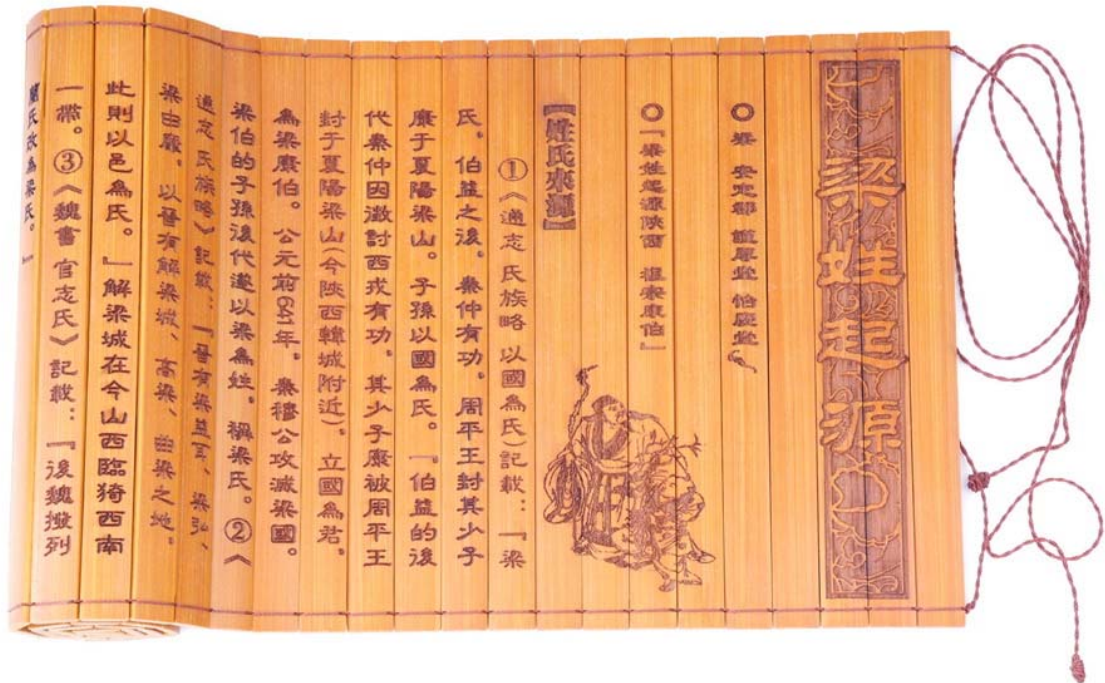 梁姓起源
○ 梁 安定郡 謹厚堂 怡慶堂
○『梁姓起源陝西 溫秦康伯』
【姓氏來源】
①《通志 氏族略 以國爲氏》記載：『梁
氏、伯益之後、秦仲有功、周平王封其少子
康于夏陽梁山。子孫以國爲氏。』伯益的後
代秦仲因徵討西戎有功、其少子康被周平王
封于夏陽梁山(今陝西韓城附近)、立國爲君、
爲梁康伯。公元前641年、秦穆公攻滅梁國。
梁伯的子孫後代遂以梁爲姓、稱梁氏。②《
通志 氏族略》記載：『晉有梁益耳、梁弘、
梁由靡、以晉有解梁城、高梁、曲梁之地。
此則以邑爲氏。』解梁城在今山西臨猗西南
一帶。③《魏書 官志氏》記載：『後魏撥列
蘭氏改爲梁氏。